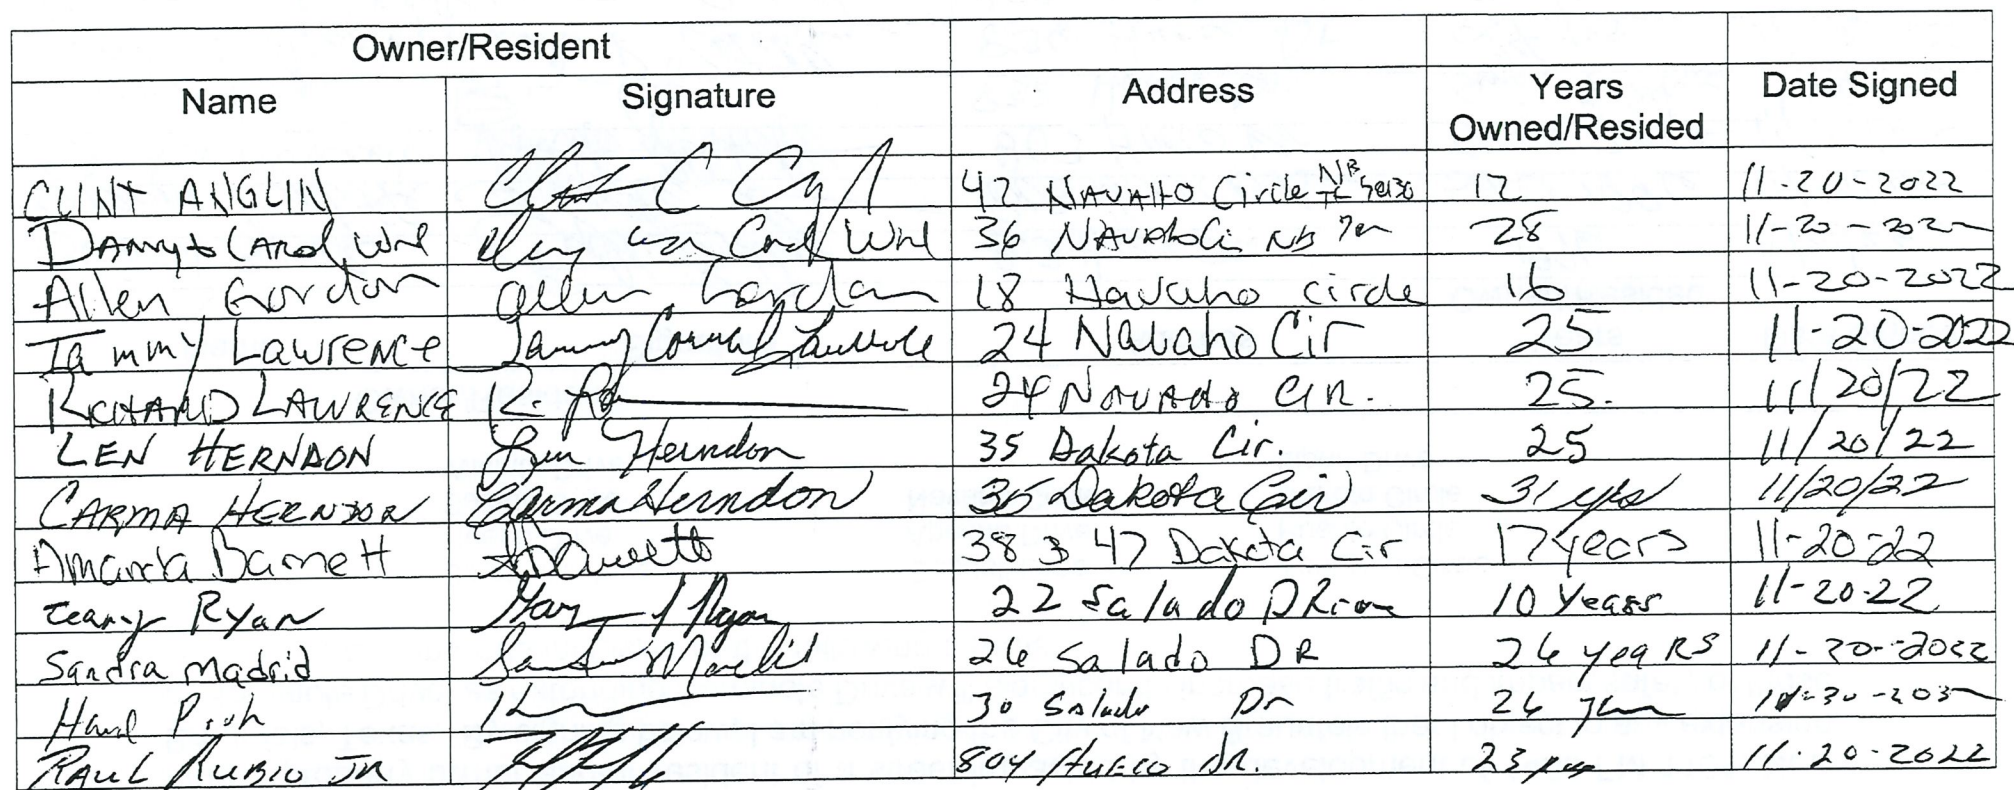 Owner/Resident
Name Signature Address Years Owned/Resided Date Signed
CLINT ANGLIN 42 NAVAHO Circle NB TX 78130 12 11-20-2022
Danny & Carol 36 NAVAHO Cir NB 28 11-20-2022
Allen Gordon Allen Gordon 18 Navaho circle 16 11-20-2022
Tammy Lawrence Tammy Lawrence 24 Navaho Cir 25 11-20-2022
RICHARD LAWRENCE R. 24 NAVAHO CIR. 25. 11/20/22
LEN HERNDON Len Herndon 35 Dakota Cir. 25 11/20/22
CARMA HERNDON Carma Herndon 35 Dakota Cir 31 yrs 11/20/22
Amanda Barnett 38 & 47 Dakota Cir 17 years 11-20-22
Ryan Ryan 22 Salado DRive 10 Years 11-20-22
Sandra Madrid 26 Salado DR 26 yeaRS 11-20-2022
30 Salado Dr 26
RAUL RUBIO JR 804 HUECO DR. 23 11-20-2022